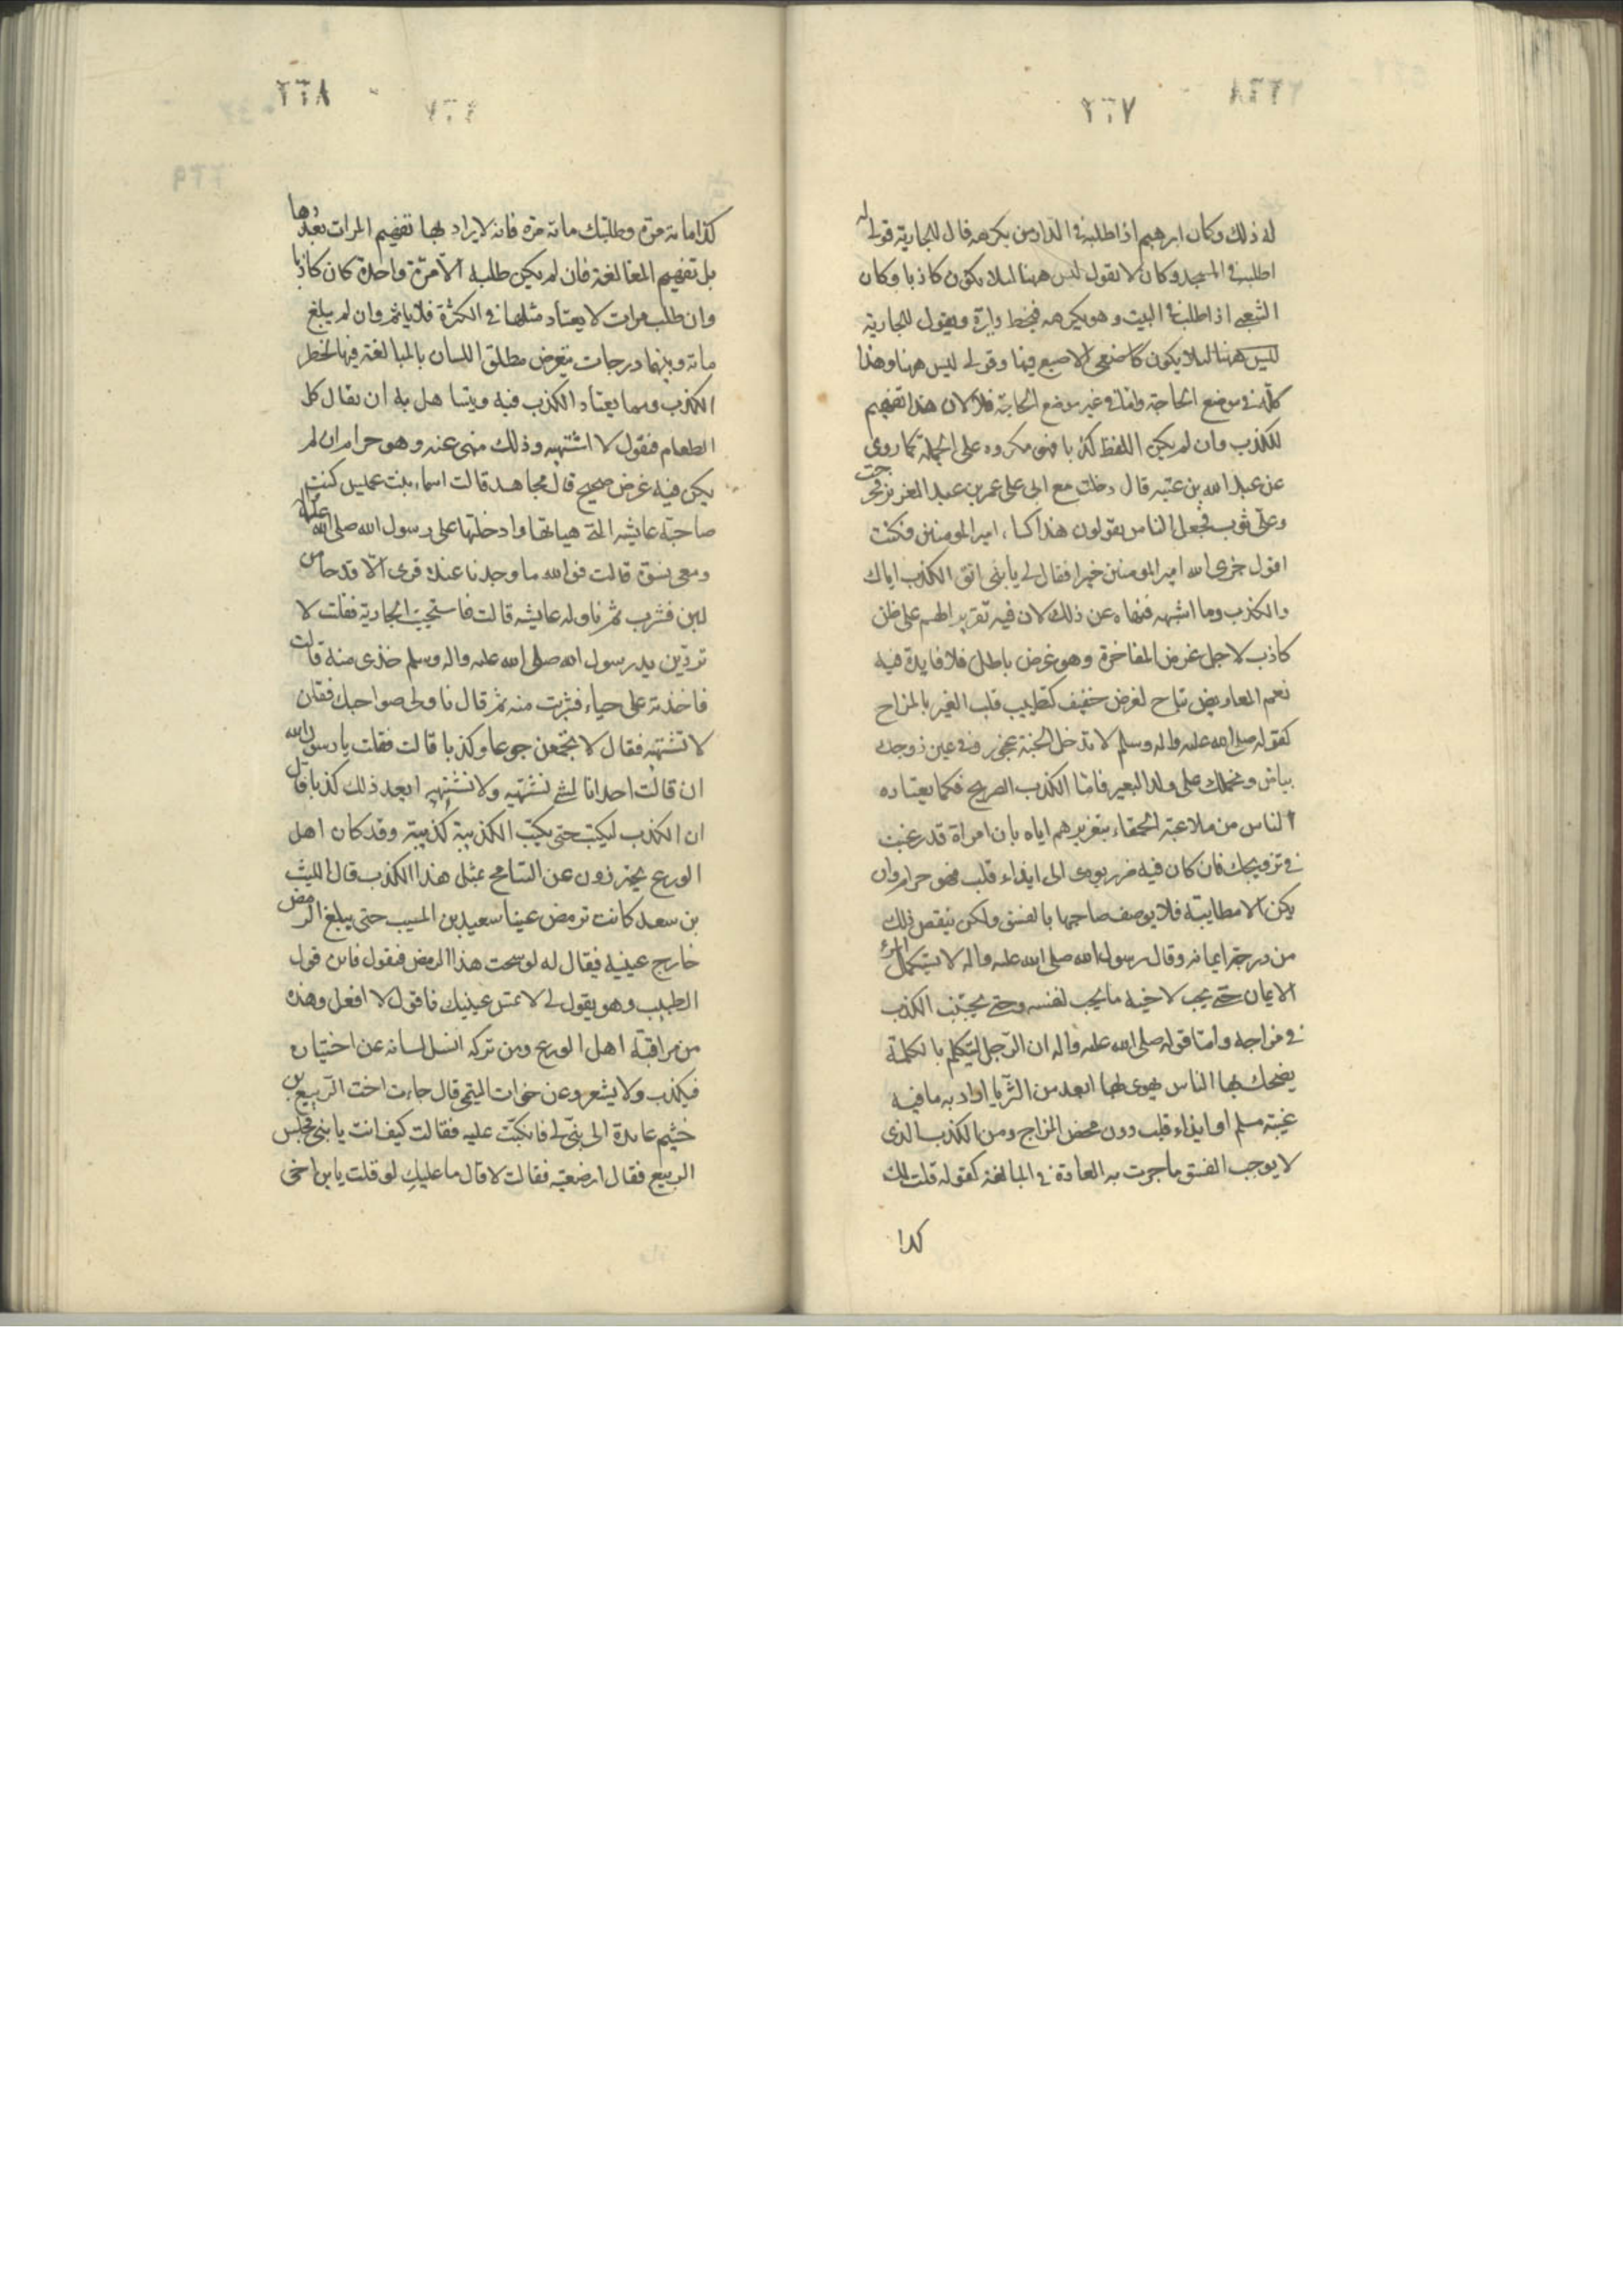 ٢٦٧
له ذلك وكان ابرهيم اذا طلبه في الدار من يكرهه قال للجارية قولي له
اطلبه في المسجد وكان لا يقول ليس ههنا لئلا يكون كاذبا وكان
الشعبي اذا طلب في البيت وهو يكرهه فيخط دايرة ويقول للجارية
ضعي الاصبع فيها وقولي ليس ههنا وهذا
كله في موضع الحاجة واما في غير موضع الحاجة فلا لان هذا تفهيم
للكذب وان لم يكن اللفظ كذبا فهو مكروه على الجملة كما روي
عن عبد الله بن عتبه قال دخلت مع ابي على عمر بن عبد العزيز فخرجت
وعلي ثوب فجعل الناس يقولون هذا كساء امير المومنين فكنت
اقول جزى الله امير المومنين خيرا فقال لي يا بني اتق الكذب اياك
والكذب وما اشبهه فنهاه عن ذلك لان فيه تقريرا لهم على ظن
كاذب لاجل غرض المفاخرة وهو غرض باطل فلا فايدة فيه
نعم المعاريض تباح لغرض خفيف كتطييب قلب الغير بالمزاح
كقوله صلى الله عليه واله وسلم لا تدخل الجنة عجوز وفي عين زوجك
بياض ونحملك على ولد البعير فاما الكذب الصريح فكما يعتاده
الناس من ملاعبة الحمقاء بتغريرهم اياه بان امراة قد رغبت
في تزويجك فان كان فيه ضرر يودي الى ايذاء قلب فهو حرام وان
يكن الا مطايبة فلا يوصف صاحبها بالفسق ولكن ينقص ذلك
من درجة ايمانه وقال رسول الله صلى الله عليه واله لا يستكمل المرء
الايمان حتى يحب لاخيه ما يحب لنفسه وحتى يجتنب الكذب
في مزاحه واما قوله صلى الله عليه واله ان الرجل ليتكلم بالكلمة
يضحك بها الناس يهوى بها ابعد من الثريا اراد به ما فيه
غيبة مسلم او ايذاء قلب دون محض المزاح ومن الكذب الذى
لا يوجب الفسق ما جرت به العادة في المبالغة كقوله قلت لك
كذا
٢٦٨
كذا مائة مرة وطلبتك مائة مرة فانه لا يراد بها تفهيم المرات بعددها
بل تفهيم المبالغة فان لم يكن طلبه الا مرة واحدة كان كاذبا
وان طلب مرات لا يعتاد مثلها في الكثرة فلا ياثم وان لم يبلغ
مائة وبينهما درجات يتعرض مطلق اللسان بالمبالغة فيها لخطر
الكذب ومما يعتاد الكذب فيه ويتساهل به ان يقال كل
الطعام فيقول لا اشتهيه وذلك منهى عنه وهو حرام ان لم
يكن فيه غرض صحيح قال مجاهد قالت اسماء بنت عميس كنت
صاحبة عايشه التي هياتها وادخلتها على رسول الله صلى الله عليه واله
ومعى نسوة قالت فوالله ما وجدنا عنده قرى الا قدحا من
لبن فشرب ثم ناوله عايشه قالت فاستحيت الجارية فقلت لا
تردين يد رسول الله صلى الله عليه واله وسلم خذى منه قالت
فاخذته على حياء فشربت منه ثم قال ناولى صواحبك فقلن
لا نشتهيه فقال لا تجمعن جوعا وكذبا قالت فقلت يا رسول الله
ان قالت احدانا لشئ نشتهيه ولا نشتهيه ايعد ذلك كذبا قال
ان الكذب ليكتب حتى يكتب الكذيبة كذيبة وقد كان اهل
الورع يحترزون عن التسامح بمثل هذا الكذب قال الليث
بن سعد كانت ترمض عينا سعيد بن المسيب حتى يبلغ الرمض
خارج عينيه فيقال له لو مسحت هذا الرمض فيقول فاين قول
الطبيب وهو يقول لي لا تمس عينيك فاقول لا افعل وهذه
من مراقبة اهل الورع ومن تركه انسل لسانه عن اختياره
فيكذب ولا يشعر وعن خوات التيمى قال جاءت اخت الربيع بن
خثيم عايدة الى بني لي فانكبت عليه فقالت كيف انت يا بنى فجلس
الربيع فقال ارضعتيه فقالت لا قال ما عليكِ لو قلت يا بن اخى